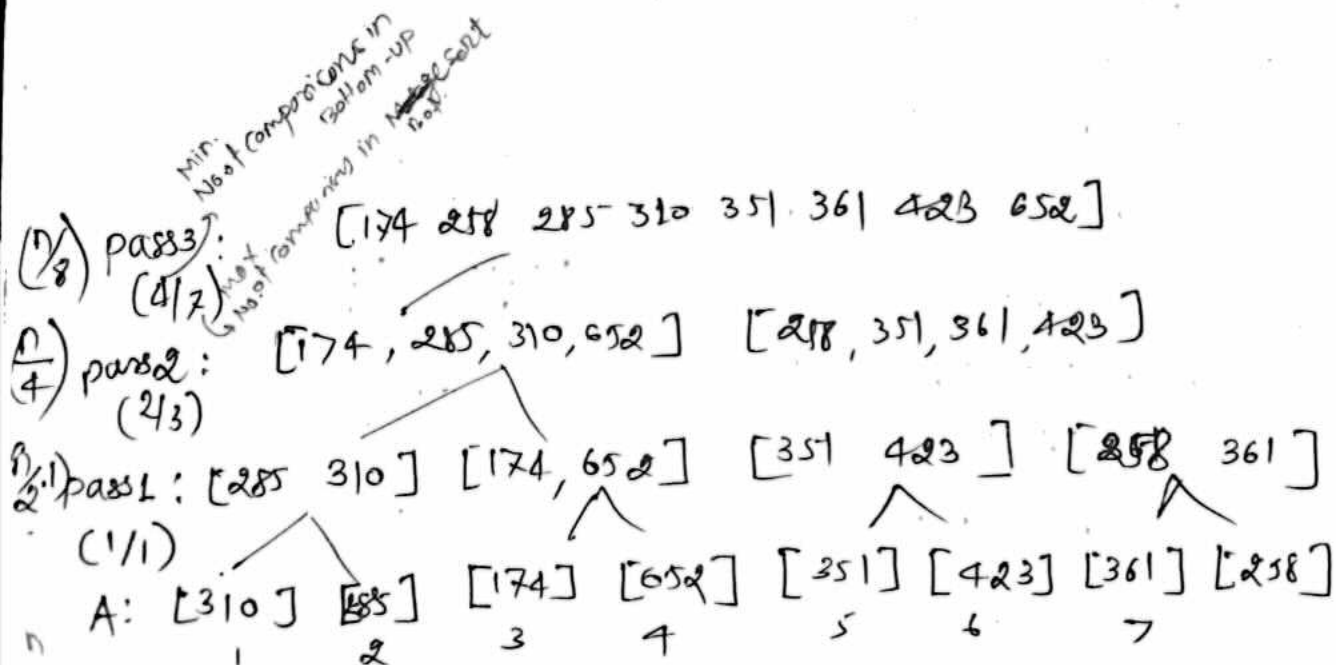 Min.
No of comparisons in
Bottom-up
max
No. of comparisons in sort
(n/8) pass3: [174 258 285 310 351 361 423 652]
(4/7)
(n/4) pass2: [174, 285, 310, 652] [258, 351, 361, 423]
(2/3)
n/2.1) pass1: [285 310] [174, 652] [351 423] [258 361]
(1/1)
A: [310] [285] [174] [652] [351] [423] [361] [258]
n 1 2 3 4 5 6 7